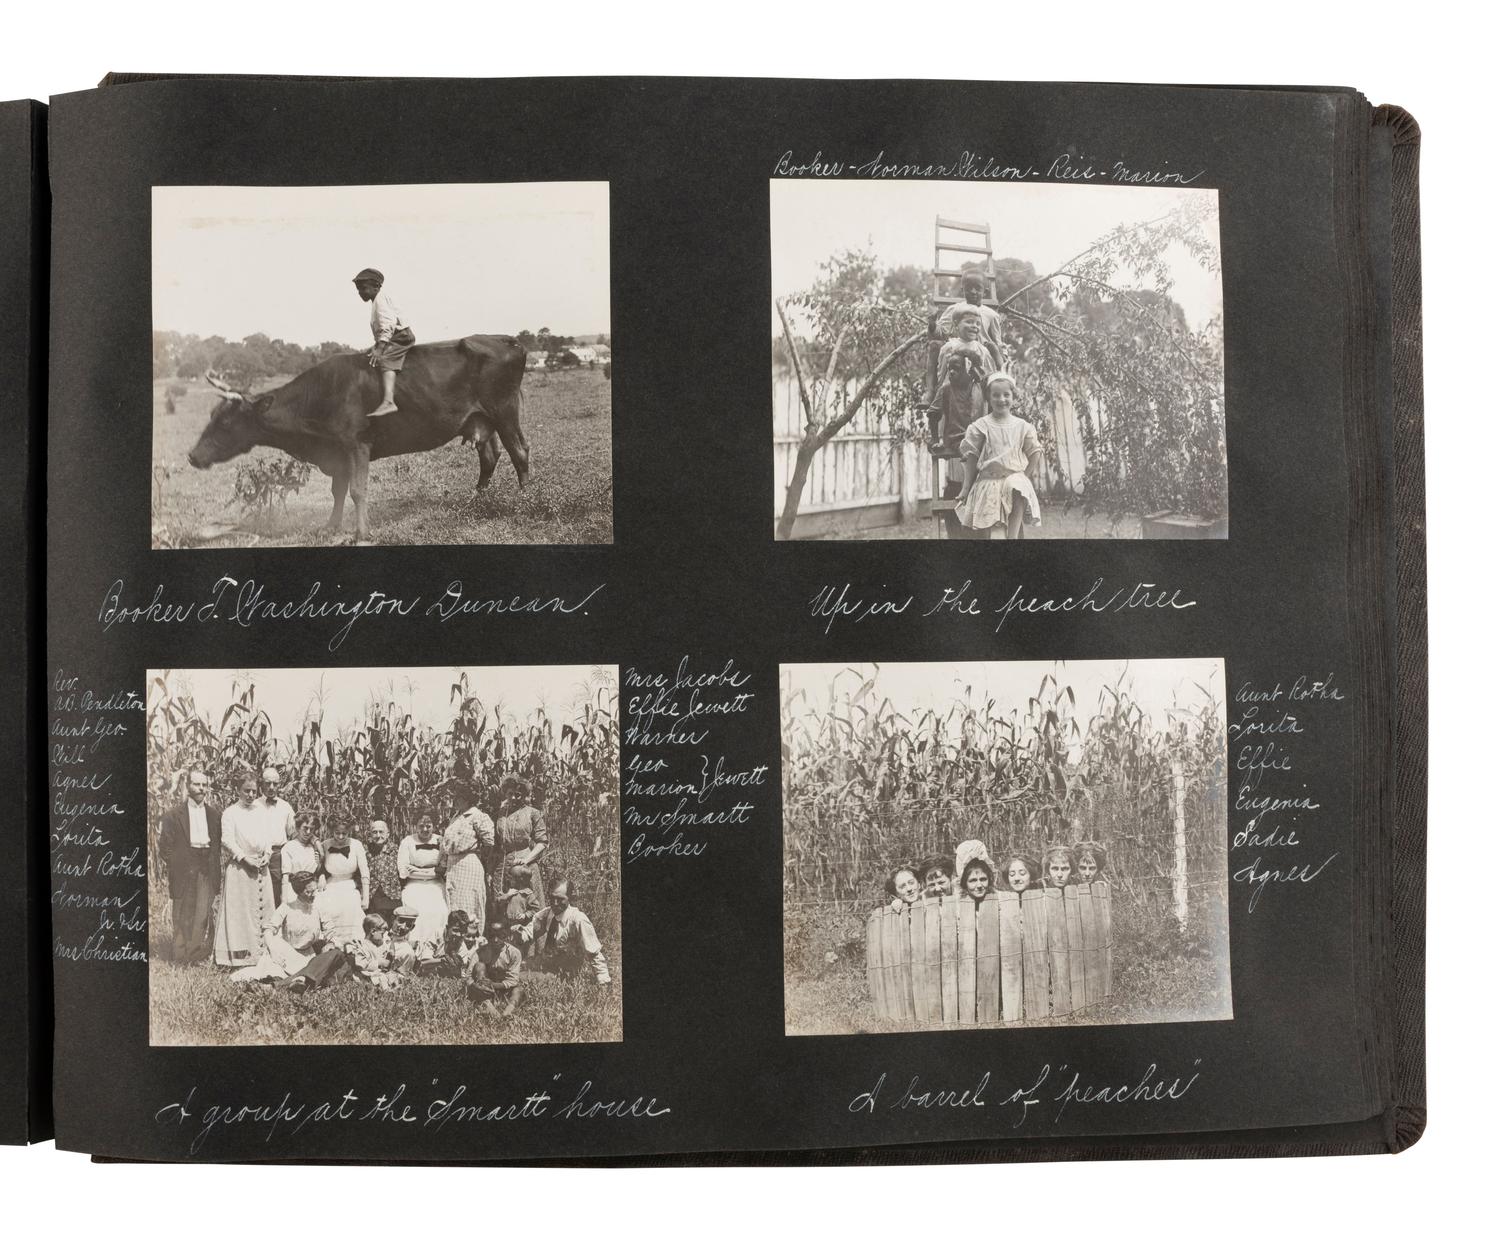 Booker T. Washington Duncan.
Booker - Norman Wilson - Reis - Marion
Up in the peach tree
Rev.
A.B. Pendleton
Aunt Geo
Will
Agnes
Eugenia
Lorita
Aunt Rotha
Norman
Jr. & Sr.
Mrs Christian
Mrs Jacobs
Effie Jewett
Warner
Geo
Marion } Jewett
Mr Smartt
Booker
A group at the "Smartt" house
Aunt Rotha
Lorita
Effie
Eugenia
Sadie
Agnes
A barrel of "peaches"